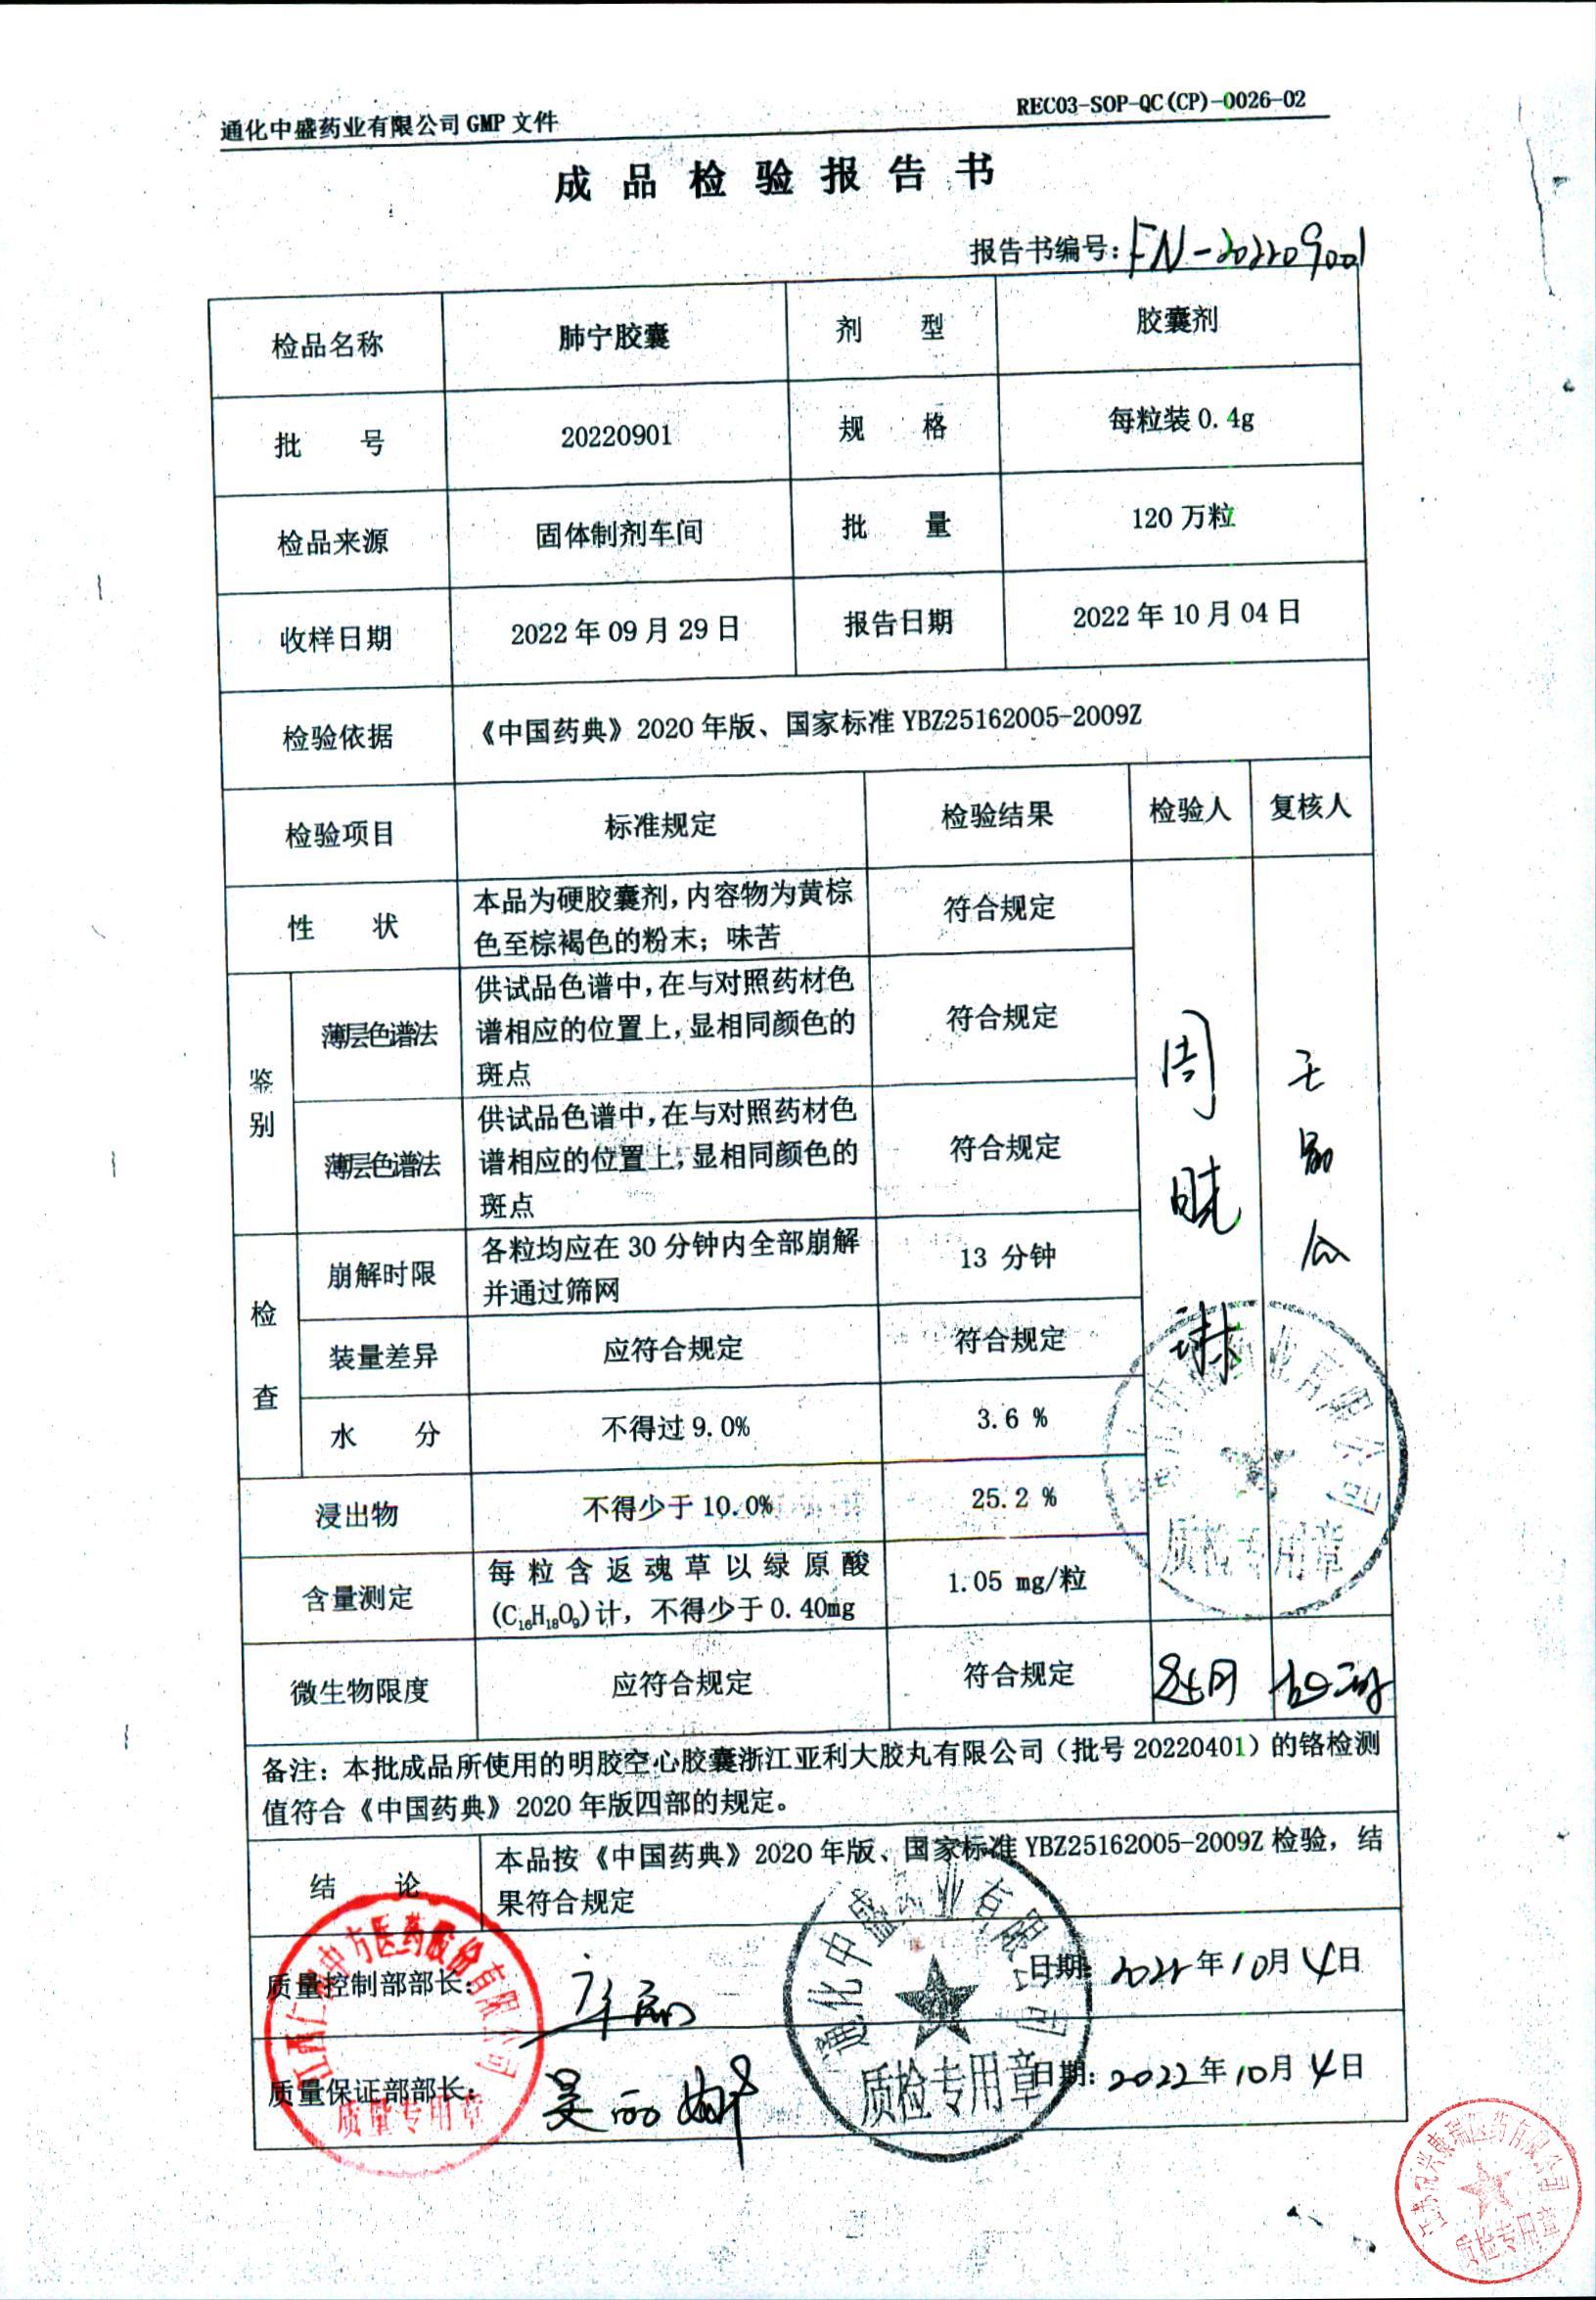 通化中盛药业有限公司 GMP 文件
REC03-SOP-QC(CP)-0026-02
成品检验报告书
报告书编号: FN-202209001
检品名称 肺宁胶囊 剂 型 胶囊剂
批 号 20220901 规 格 每粒装 0.4g
检品来源 固体制剂车间 批 量 120 万粒
收样日期 2022 年 09 月 29 日 报告日期 2022 年 10 月 04 日
检验依据 《中国药典》2020 年版、国家标准 YBZ25162005-2009Z
检验项目 标准规定 检验结果 检验人 复核人
性 状 本品为硬胶囊剂，内容物为黄棕
色至棕褐色的粉末；味苦
符合规定
鉴别
薄层色谱法
供试品色谱中，在与对照药材色
谱相应的位置上，显相同颜色的
斑点
符合规定
薄层色谱法
供试品色谱中，在与对照药材色
谱相应的位置上，显相同颜色的
斑点
符合规定
周晓琳
检查
崩解时限
各粒均应在 30 分钟内全部崩解
并通过筛网
13 分钟
装量差异 应符合规定 符合规定
水 分 不得过 9.0% 3.6 %
浸出物 不得少于 10.0% 25.2 %
含量测定
每粒含返魂草以绿原酸
(C16H18O9)计，不得少于 0.40mg
1.05 mg/粒
质检专用章
微生物限度 应符合规定 符合规定
备注：本批成品所使用的明胶空心胶囊浙江亚利大胶丸有限公司（批号 20220401）的铬检测
值符合《中国药典》2020 年版四部的规定。
结 论
本品按《中国药典》2020 年版、国家标准 YBZ25162005-2009Z 检验，结
果符合规定
质量控制部部长: 日期: 2022 年 10 月 4 日
质量保证部部长: 吴丽娜 日期: 2022 年 10 月 4 日
通化中盛药业有限公司
质检专用章
江西仁 中方医药股份有限公司
质量专用章
质检专用章